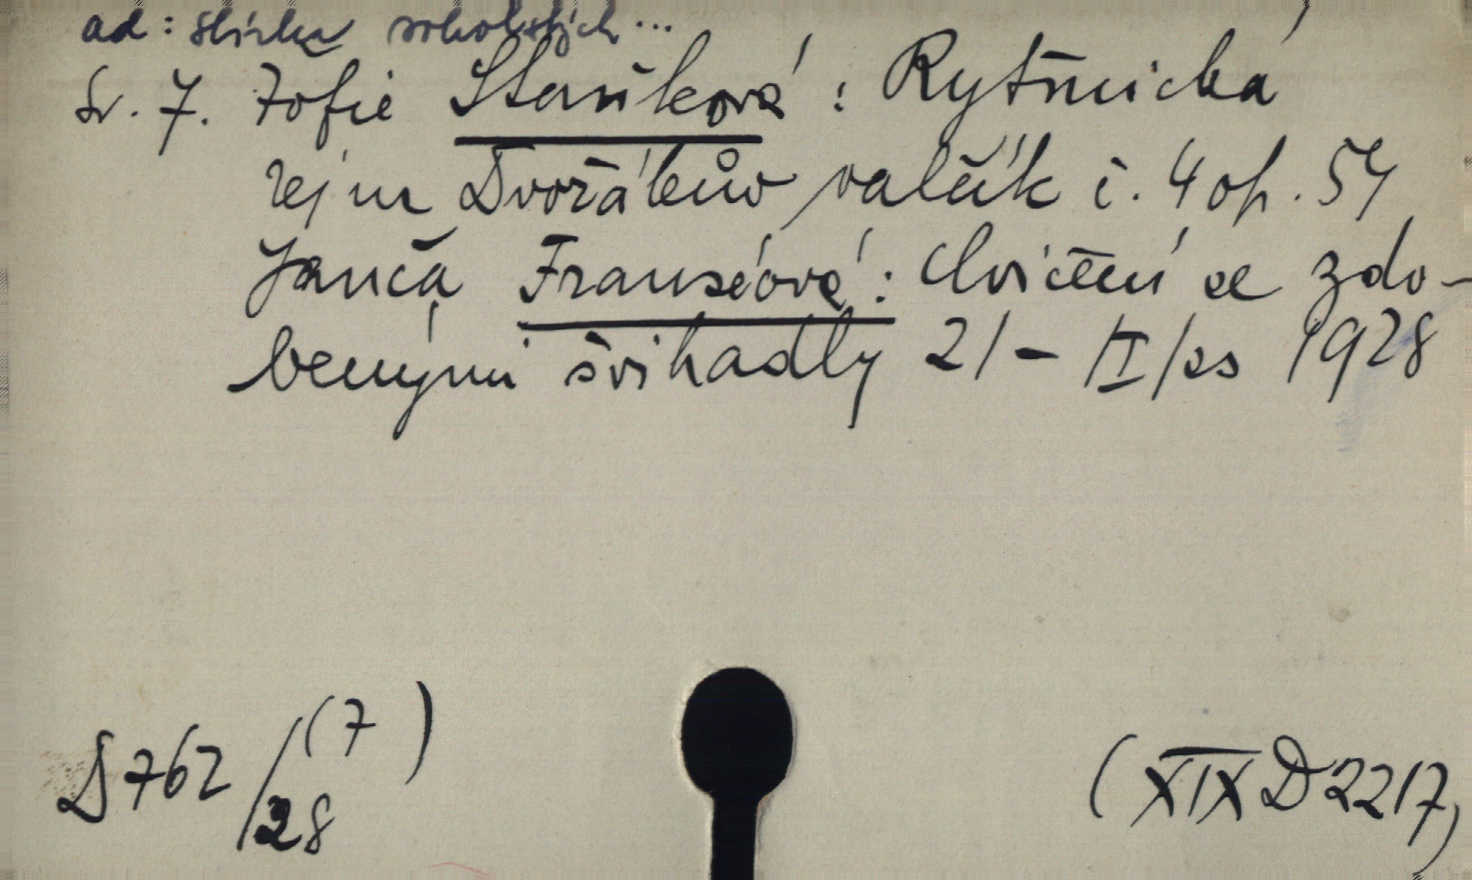 ad: sbírka sokolských...
Sv. 7. Žofie Staňková: Rytmická
rej na Dvořákův valčík č. 4 op. 54
Janča Franséová: Cvičení se zdo-
benými švihadly 21 - II/ss 1928
D 762/28 (7)
(XIX D 2217)